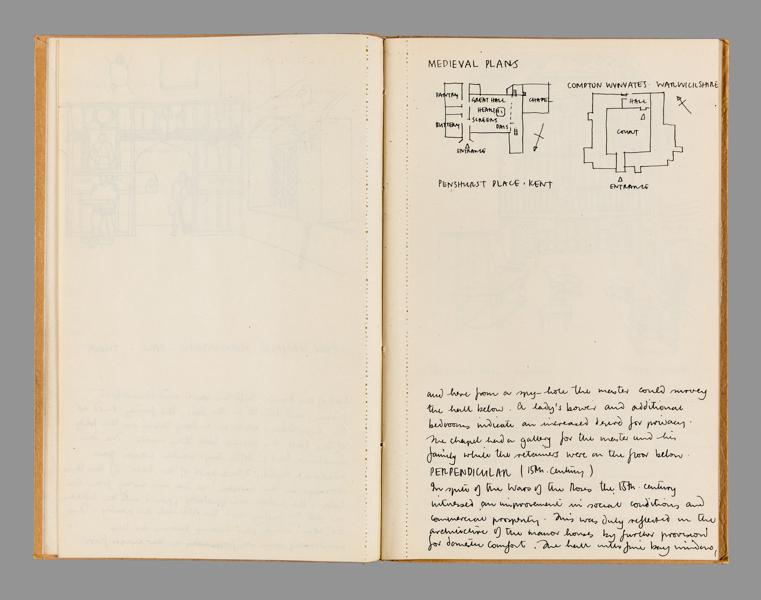 MEDIEVAL PLANS
COMPTON WYNYATES · WARWICKSHIRE
PANTRY
GREAT HALL
HEARTH
SCREENS
BUTTERY
DAIS
CHAPEL
ENTRANCE
HALL
COURT
ENTRANCE
PENSHURST PLACE · KENT
and here from a spy-hole the master could survey
the hall below. A lady's bower and additional
bedrooms indicate an increased desire for privacy.
The chapel had a gallery for the master and his
family while the retainers were on the floor below.
PERPENDICULAR (15th. Century)
In spite of the Wars of the Roses the 15th. century
witnessed an improvement in social conditions and
commercial prosperity. This was duly reflected in the
architecture of the manor houses by further provision
for domestic comfort. The hall with fine bay windows,